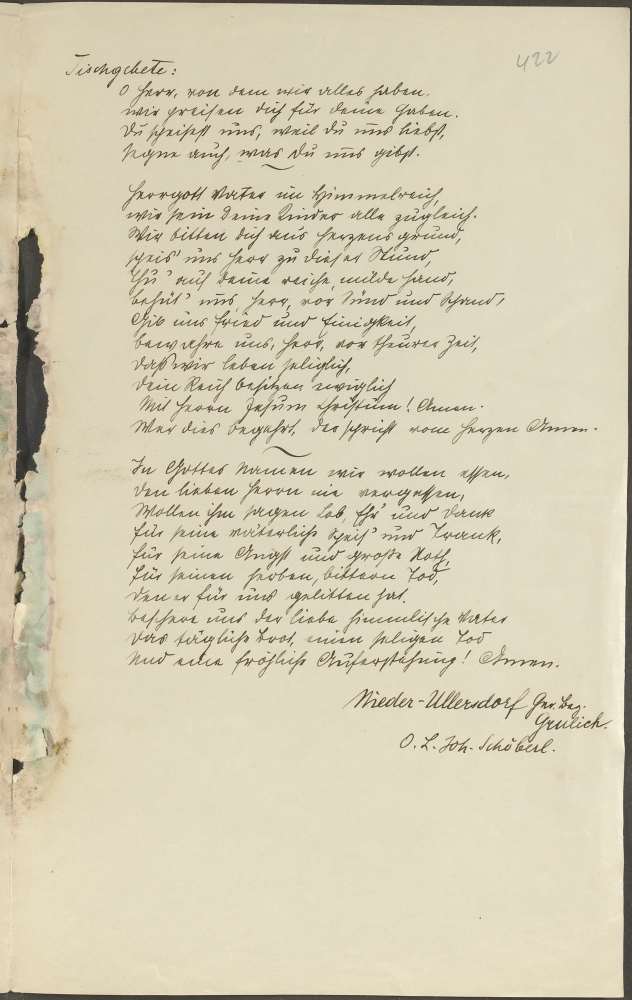 422
Tischgebete:
O Herr, von dem wir alles haben,
wir preisen dich für deine Gaben.
Du speisest uns, weil du uns liebst,
segne auch, was du uns gibst.
Herrgott Vater im Himmelreich,
wir sein deine Kinder alle zugleich.
Wir bitten dich aus Herzensgrund,
speis' uns Herr zu dieser Stund,
Thu' auf deine reiche, milde Hand,
behüt' uns, Herr, vor Sünd und Schand,
Gib uns Fried und Einigkeit,
bewahre uns, Herr, vor theurer Zeit,
daß wir leben seliglich,
dein Reich besitzen ewiglich
Mit Herrn Jesum Christum! Amen.
Wer dies begehrt, der spricht vom Herzen Amen.
In Gottes Namen wir wollen essen,
den lieben Herrn nie vergessen,
Wollen ihm sagen Lob, Ehr' und Dank
für seine väterliche Speis' und Trank,
für seine Angst und große Noth,
für seinen herben, bittern Tod,
den er für uns gelitten hat.
beschere uns der liebe himmlische Vater
das tägliche Brot, einen seligen Tod
und eine fröhliche Auferstehung! Amen.
Nieder-Ullersdorf Ger. Bez.
Grulich.
O. L. Joh. Schöberl.